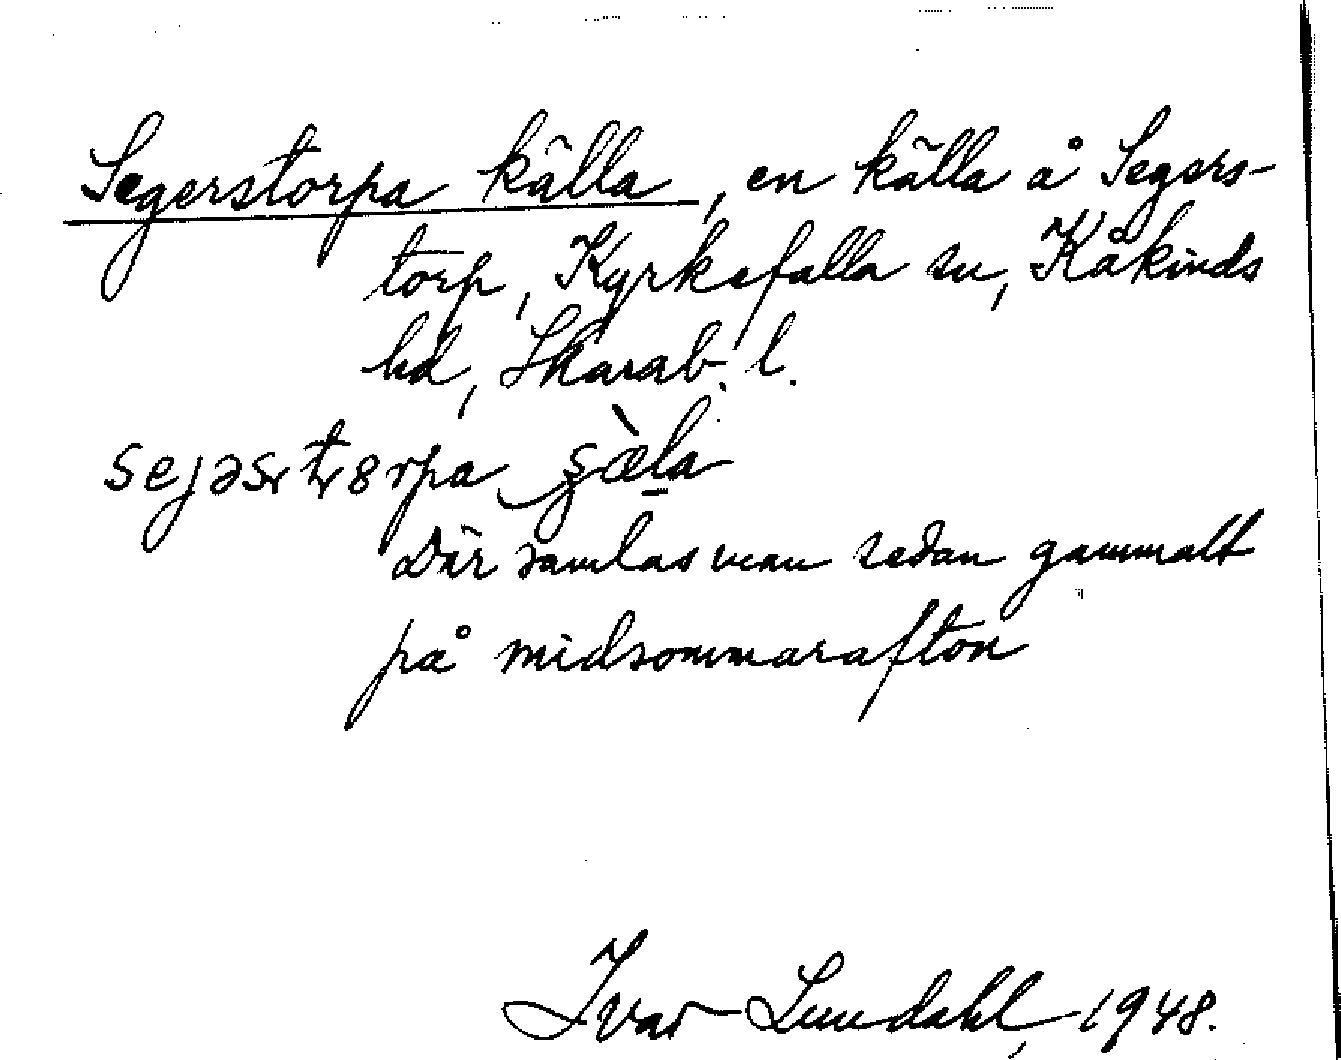 Segerstorpa källa, en källa å Segers-
torp, Kyrkefalla sn, Kåkinds
hd, Skarab. l.
Där samlas man sedan gammalt
på midsommarafton
Ivar Lundahl, 1948.